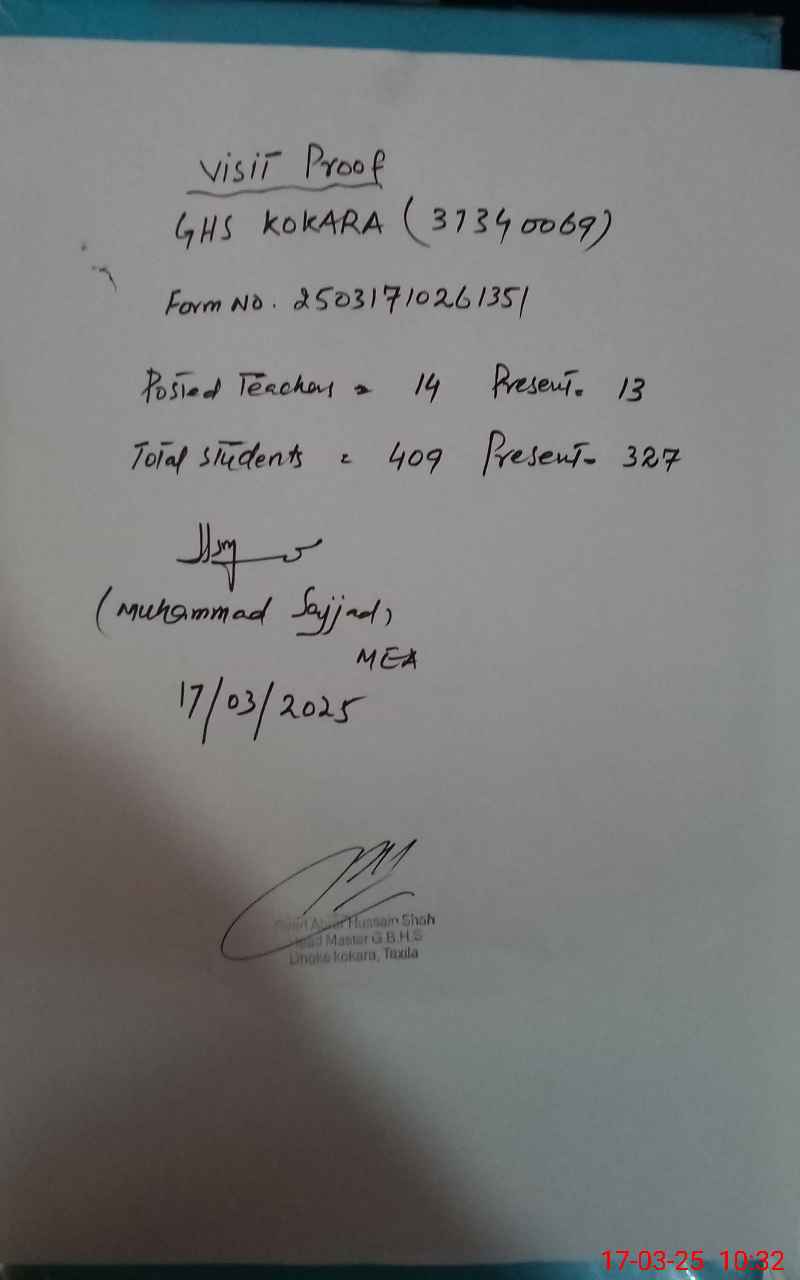 Visit Proof
GHS KOKARA (37340069)
Form No. 25031710261351
Posted Teachers = 14 Present. 13
Total students = 409 Present- 327
(Muhammad Sajjad)
MEA
17/03/2025
Hussain Shah
Head Master G.B.H.S
Dhoke kokara, Taxila
17-03-25 10:32